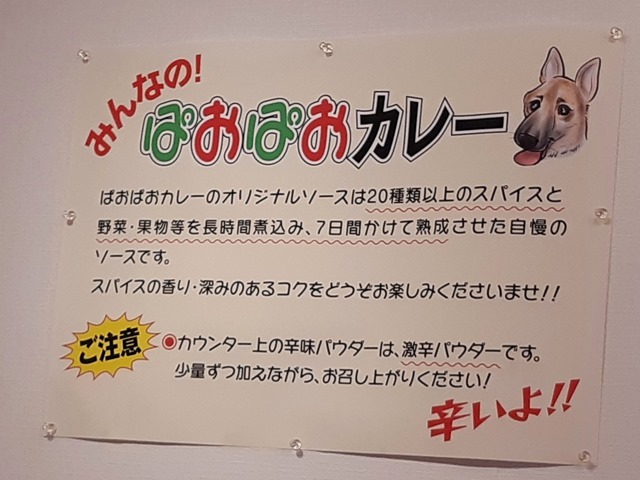 みんなの!
ぱおぱおカレー
ぱおぱおカレーのオリジナルソースは20種類以上のスパイスと
野菜・果物等を長時間煮込み、7日間かけて熟成させた自慢の
ソースです。
スパイスの香り・深みのあるコクをどうぞお楽しみくださいませ!!
ご注意
◉カウンター上の辛味パウダーは、激辛パウダーです。
少量ずつ加えながら、お召し上がりください!
辛いよ!!